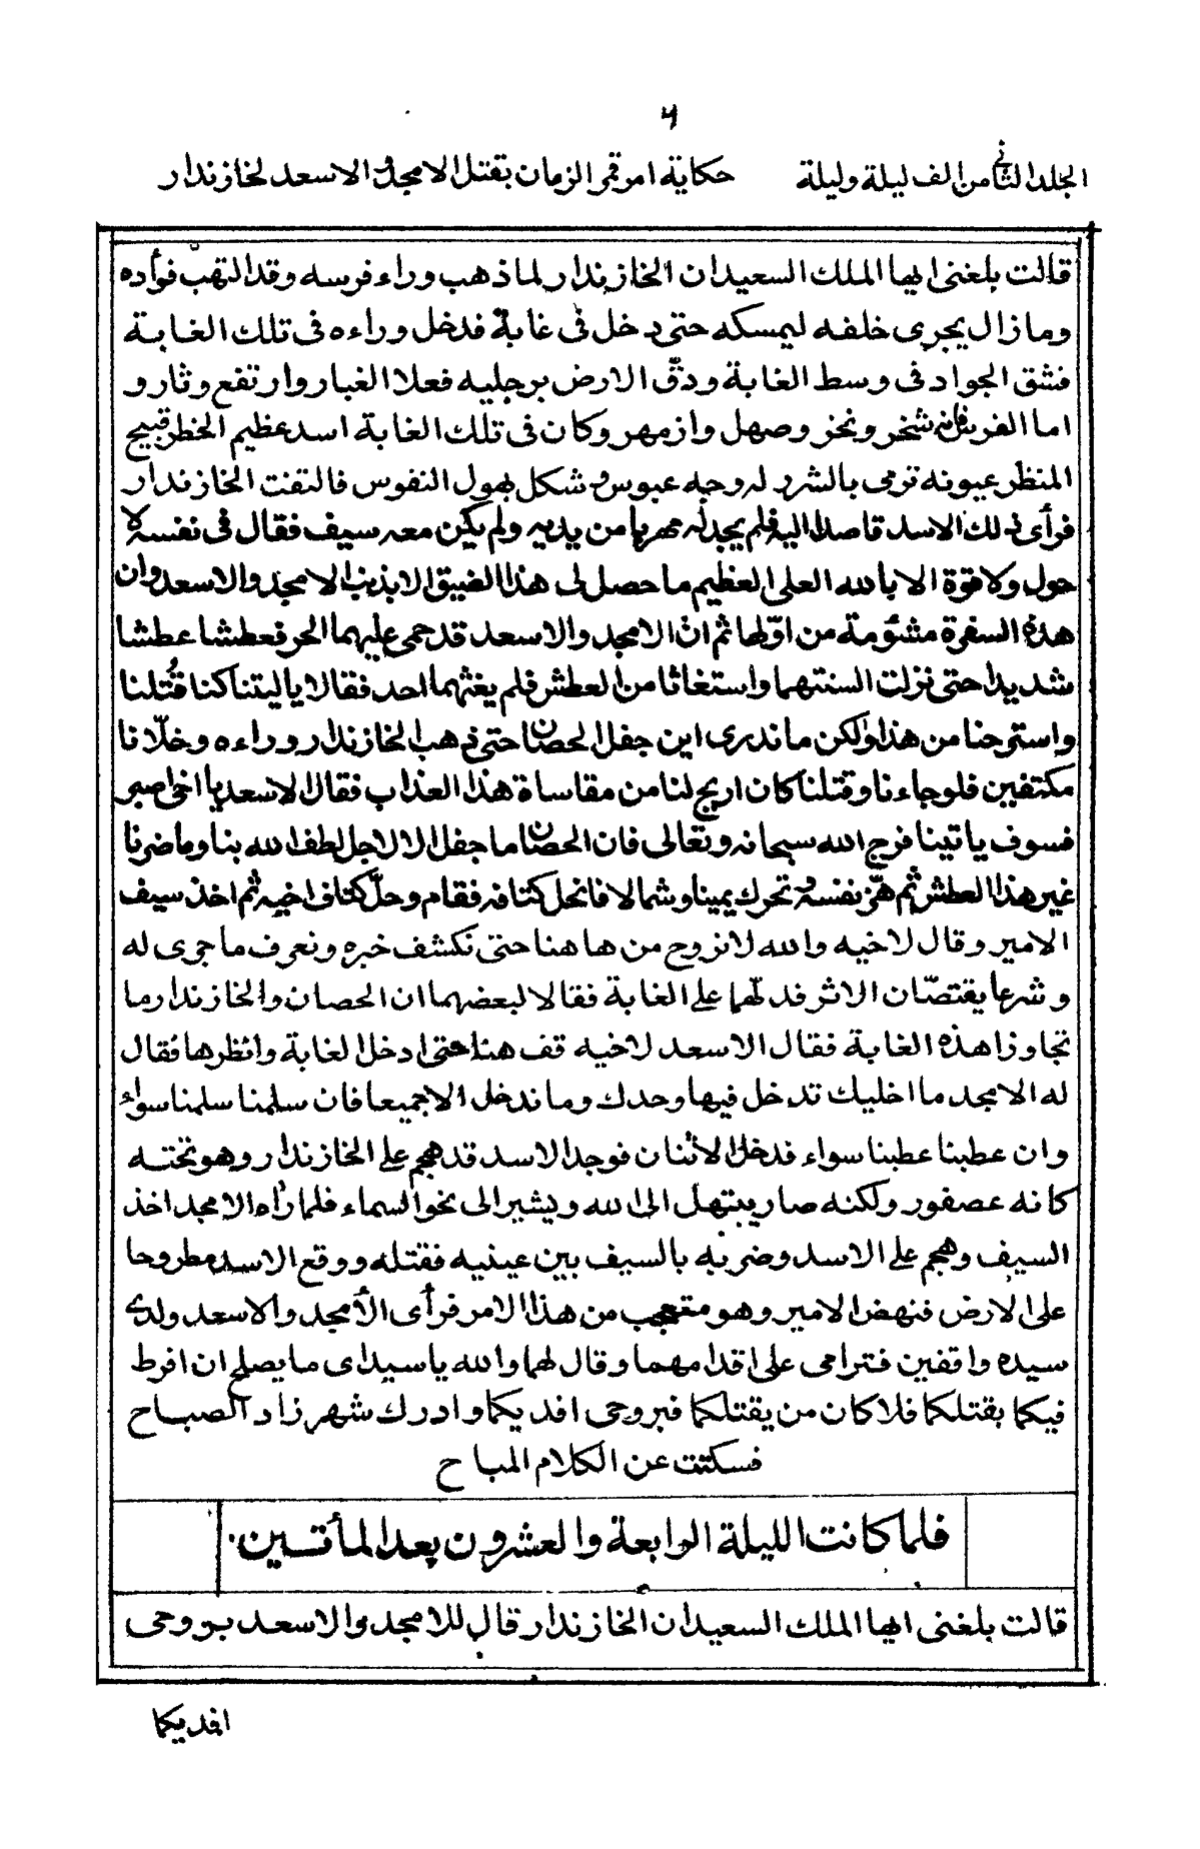 ٦
الجلد الثانى من الف ليلة وليلة حكاية امر قمر الزمان بقتل الامجد والاسعد لخازندار
قالت بلغنى ايها الملك السعيد ان الخازندار لما ذهب وراء فرسه وقد التهب فوأده
وما زال يجرى خلفه ليمسكه حتى دخل فى غابة فدخل وراءه فى تلك الغابة
فشق الجواد فى وسط الغابة ودقّ الارض برجليه فعلا الغبار وارتفع وثار و
اما الفرس فانه شخر ونخر وصهل وازمهر وكان فى تلك الغابة اسد عظيم الخطر قبيح
المنظر عيونه ترمى بالشرر له وجه عبوس وشكل يهول النفوس فالتفت الخازندار
فرأى ذلك الاسد قاصدا اليه فلم يجد له مهربا من يديه ولم يكن معه سيف فقال فى نفسه لا
حول ولا قوة الا بالله العلى العظيم ما حصل لى هذا الضيق الا بذنب الامجد والاسعد وان
هذه السفرة مشؤمة من اوّلها ثم ان الامجد والاسعد قد حمى عليهما الحر فعطشا عطشا
شديدا حتى نزلت السنتهما واستغاثا من العطش فلم يغثهما احد فقالا ياليتنا كنا قُتلنا
واسترحنا من هذا ولكن ما ندرى اين جفل الحصان حتى ذهب الخازندار وراءه وخلّانا
مكتفين فلو جاءنا وقتلنا كان اريح لنا من مقاساة هذا العذاب فقال الاسعد يا اخى اصبر
فسوف ياتينا فرج الله سبحانه وتعالى فان الحصان ما جفل الا لاجل لطف الله بنا وما ضرنا
غير هذا العطش ثم هزّ نفسه وتحرك يمينا وشمالا فانحل كتافه فقام وحلّ كتاف اخيه ثم اخذ سيف
الامير وقال لاخيه والله لا نروح من ها هنا حتى نكشف خبره ونعرف ما جرى له
وشرعا يقتصّان الاثر فدلّهما على الغابة فقالا لبعضهما ان الحصان والخازندار ما
تجاوزا هذه الغابة فقال الاسعد لاخيه قف هنا حتى ادخل الغابة وانظرها فقال
له الامجد ما اخليك تدخل فيها وحدك وما ندخل الا جميعا فان سلمنا سلمنا سواء
وان عطبنا عطبنا سواء فدخل الاثنان فوجدا الاسد قد هجم على الخازندار وهو تحته
كانه عصفور ولكنه صار يبتهل الى الله ويشير الى نحو السماء فلما رأه الامجد اخذ
السيف وهجم على الاسد وضربه بالسيف بين عينيه فقتله ووقع الاسد مطروحا
على الارض فنهض الامير وهو متعجب من هذا الامر فرأى الأمجد والاسعد ولدى
سيده واقفين فترامى على اقدامهما وقال لهما والله يا سيداى ما يصلح ان افرط
فيكما بقتلكما فلا كان من يقتلكما فبروحى افديكما وادرك شهرزاد الصباح
فسكتت عن الكلام المباح
فلما كانت الليلة الرابعة والعشرون بعد المأتين
قالت بلغنى ايها الملك السعيد ان الخازندار قال للامجد والاسعد بروحى
افديكما